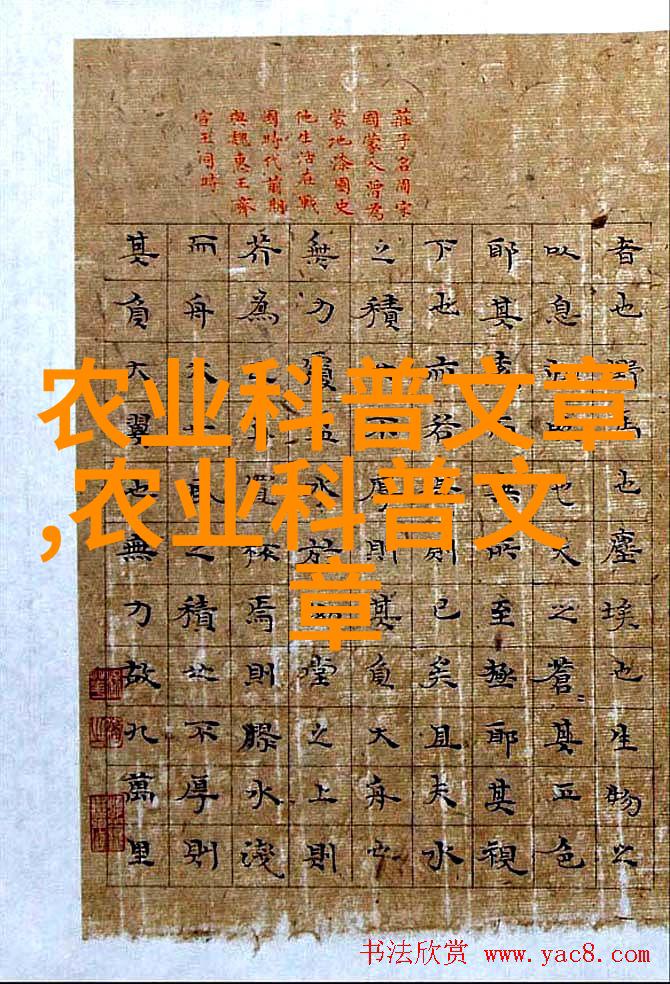 莊子名周宋
國蒙人曾為
蒙地漆園史
他生活在戰
國時代前期
與魏惠王齊
宣王同時
者也野馬也塵埃也生物之
以息相吹也天之蒼其正色
耶其遠而無所至極耶其視
下也亦若是則已矣且夫水
之積也不厚則其負大舟也
無力覆水於坳堂之上則
芥為之舟置杯焉則膠水淺
而舟大也風之積也不厚則
其負大翼也無力故九萬里
农业科普文章
,农业科普文
章
书法欣赏 www.yac8.com